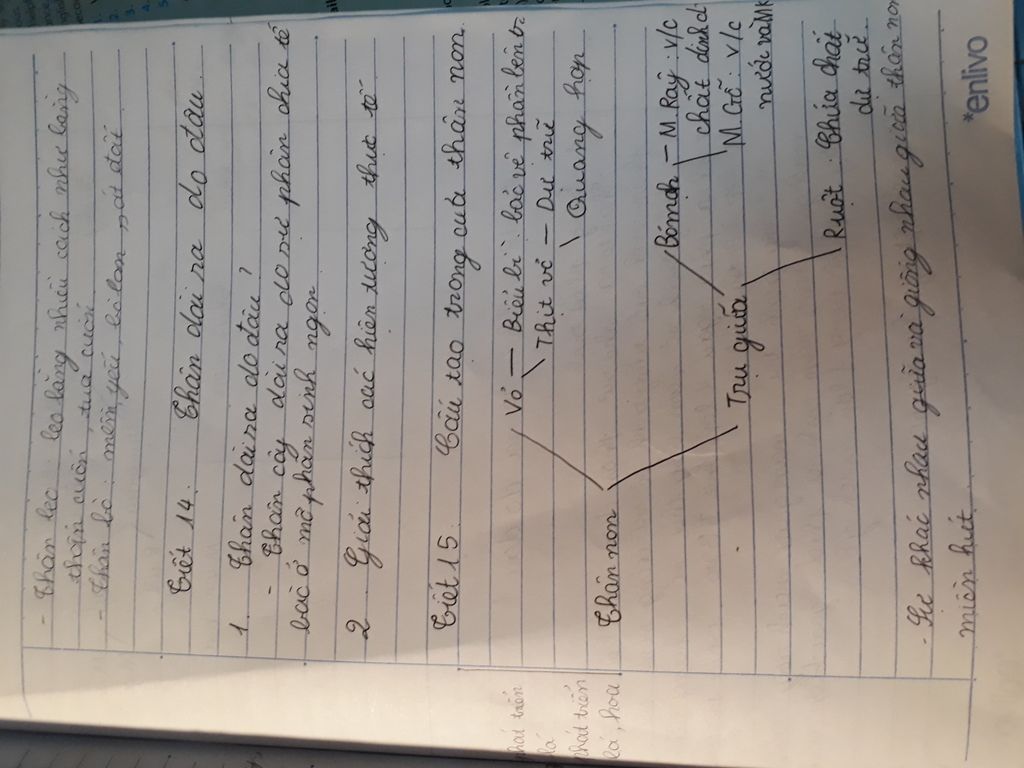 - Thân leo: leo bằng nhiều cách như bằng
thân cuốn, tua cuốn
- Thân bò: mềm yếu, bò lan sát đất
Tiết 14. Thân dài ra do đâu
1. Thân dài ra do đâu?
- Thân cây dài ra do sự phân chia tế
bào ở mô phân sinh ngọn
2. Giải thích các hiện tượng thực tế
Tiết 15. Cấu tạo trong của thân non.
Vỏ - Biểu bì: bảo vệ phần bên tr
Thịt vỏ - Dự trữ
Quang hợp
Thân non
Bómạch - M Rây: v/c
chất dinh d
M Gỗ: v/c
nước và Mk
Trụ giữa
Ruột: Chứa chất
dự trữ
- Sự khác nhau giữa và giống nhau giữa thân non
miền hút.
phát triển
lá
phát triển
lá, hoa
*enlivo